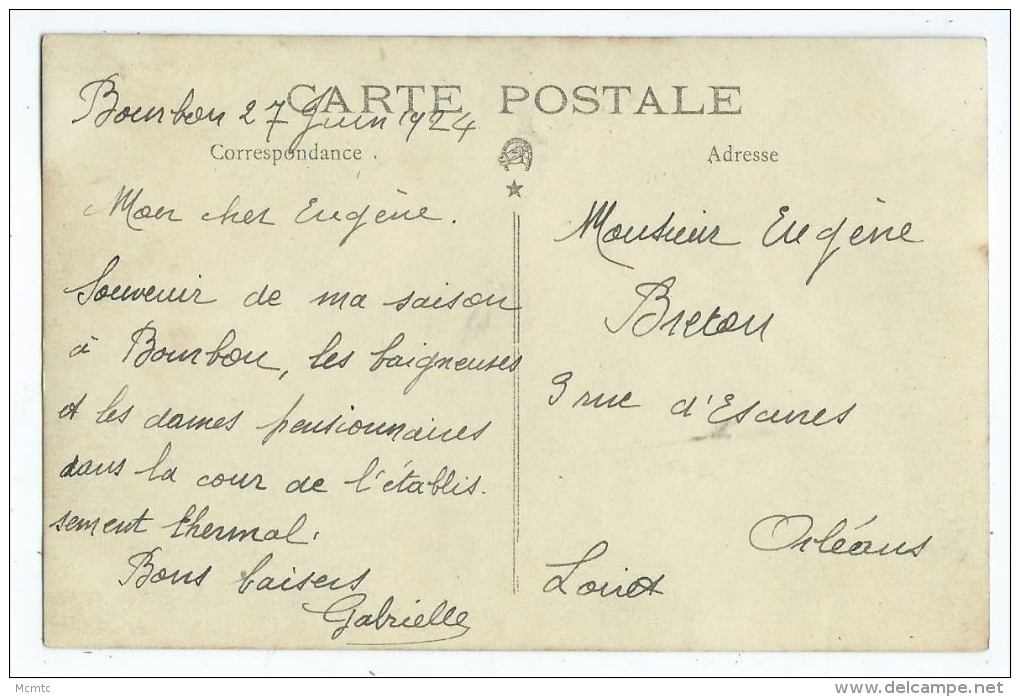 CARTE POSTALE
Bourbon 27 Juin 1924
Correspondance.
Mon cher Eugène.
Souvenir de ma saison
à Bourbon, les baigneuses
et les dames pensionnaires
dans la cour de l'établis.
sement thermal.
Bons baisers
Gabrielle
Adresse
Monsieur Eugène
Breton
9 rue d'Escures
Orléans
Loiret
Mcmtc
delcampe.net